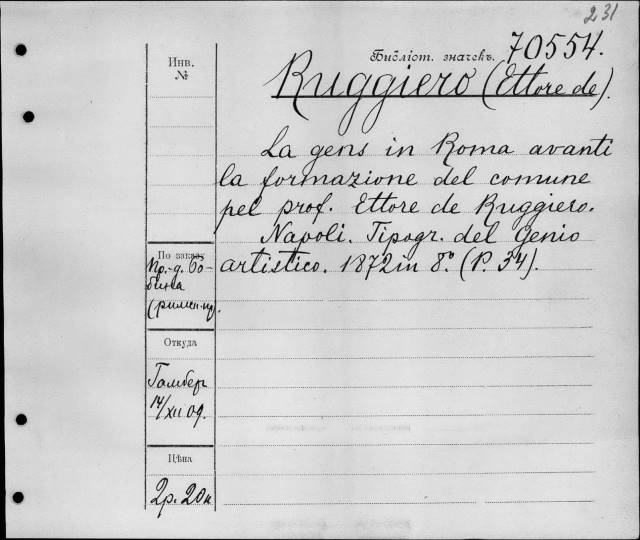 231
Библіот. значекъ. 70554.
Инв.
№
Ruggiero (Ettore de).
La gens in Roma avanti
la formazione del comune
pel prof. Ettore de Ruggiero.
Napoli. Tipogr. del Genio
artistico. 1872 in 8º. (P. 34).
По заказу
Пр.-д. Бо-
бина
Откуда
Гамбер
14/XII 09.
Цѣна
2р. 20к